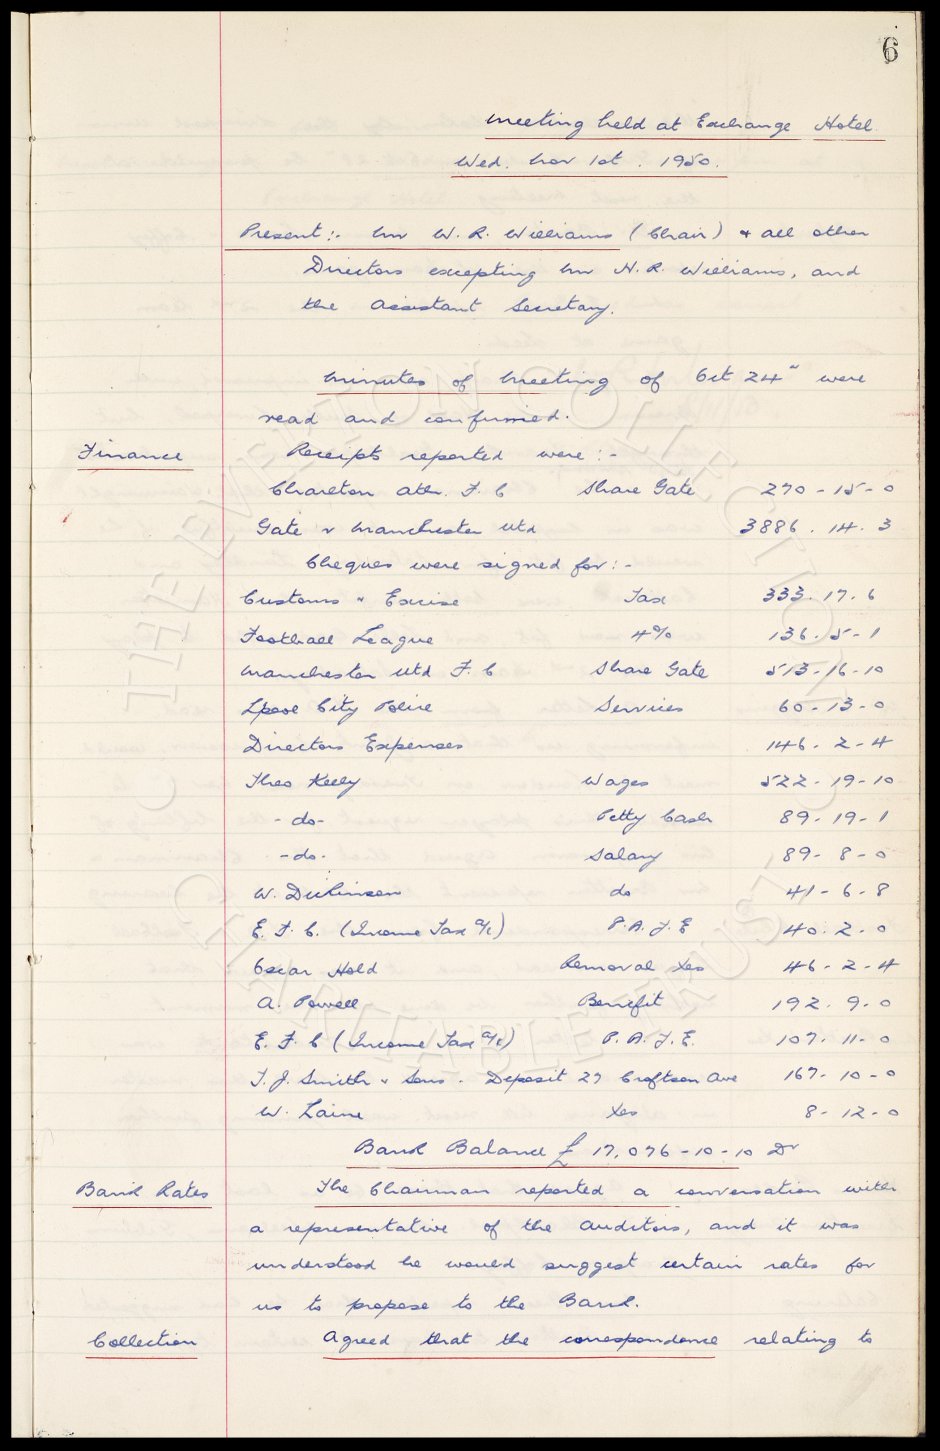 6
Meeting held at Exchange Hotel
Wed. Nov 1st. 1950.
Present:- Mr W. R. Williams (Chair) & all other
Directors excepting Mr N. R. Williams, and
the Assistant Secretary.
Minutes of Meeting of Oct 24" were
read and confirmed.
Finance Receipts reported were:-
Charlton Ath. F. C Share Gate 270-15-0
Gate v Manchester Utd 3886.14.3
Cheques were signed for:-
Customs & Excise Tax 333.17.6
Football League 4% 136-5-1
Manchester Utd F. C Share Gate 513-16-10
Lpool City Police Services 60-13-0
Directors Expenses 146-2-4
Theo Kelly Wages 522-19-10
-do- Petty Cash 89-19-1
-do- Salary 89-8-0
W. Dickinson do 41-6-8
E. F. C. (Income Tax a/c) P.A.Y.E 40.2.0
Oscar Hold Removal Xes 46-2-4
A. Powell Benefit 192.9.0
E. F. C (Income Tax a/c) P.A.Y.E. 107-11-0
T. J. Smith & Sons. Deposit 27 Croftson Ave 167-10-0
W. Laine Xes 8-12-0
Bank Balance £17,076-10-10 Dr
Bank Rates The Chairman reported a conversation with
a representative of the auditors, and it was
understood he would suggest certain rates for
us to propose to the Bank.
Collection Agreed that the correspondence relating to
THE EVERTON COLLECTION
CHARITABLE TRUST